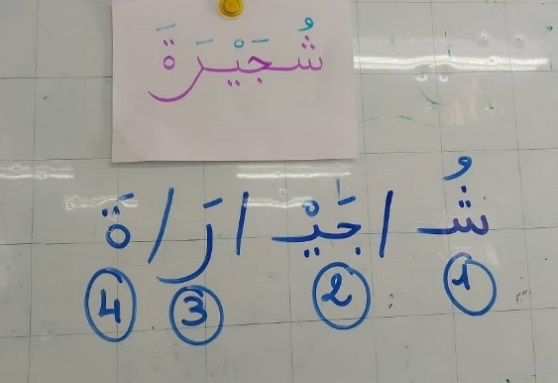 شُجَيْرَةَ
شُ / جَيْ / رَ / ةَ
1 2 3 4